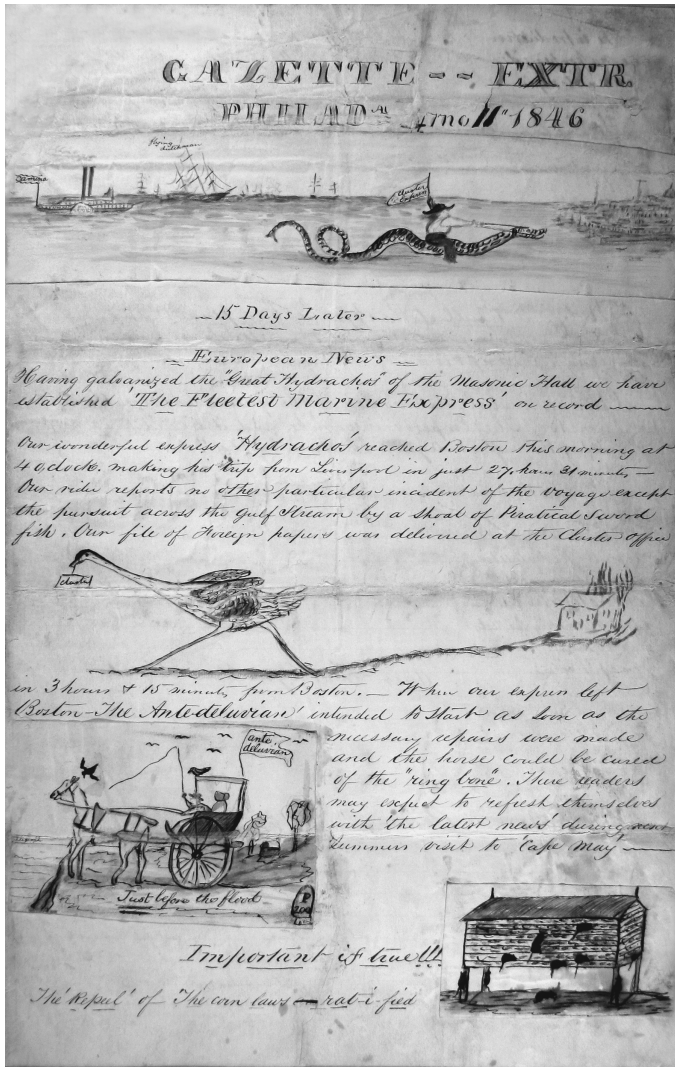 GAZETTE -- EXTR.
PHILAD.A 4mo 11" 1846
flying
dutchman
Cluster
Express
15 Days Later
European News
Having galvanized the "Great Hydrachos" of the Masonic Hall we have
established 'The Fleetest Marine Express' on record
Our wonderful express 'Hydrachos' reached Boston this morning at
4 oclock, making his trip from Liverpool in just 27 hours 31 minutes —
Our rider reports no other particular incident of the voyage except
the pursuit across the gulf stream by a shoal of Piratical Sword
fish. Our file of Foreign papers was delivered at the Cluster office
cluster
in 3 hours & 15 minutes from Boston. — When our express left
Boston - The Ante-deluvian' intended to start as soon as the
necessary repairs were made
and the horse could be cured
of the "ring bone". There readers
may expect to refresh themselves
with 'the latest news' during next
Summers visit to Cape May
ante
deluvian
Just before the flood
P
Important if true!!!
The 'Repeal' of 'The corn laws' — rat-i-fied